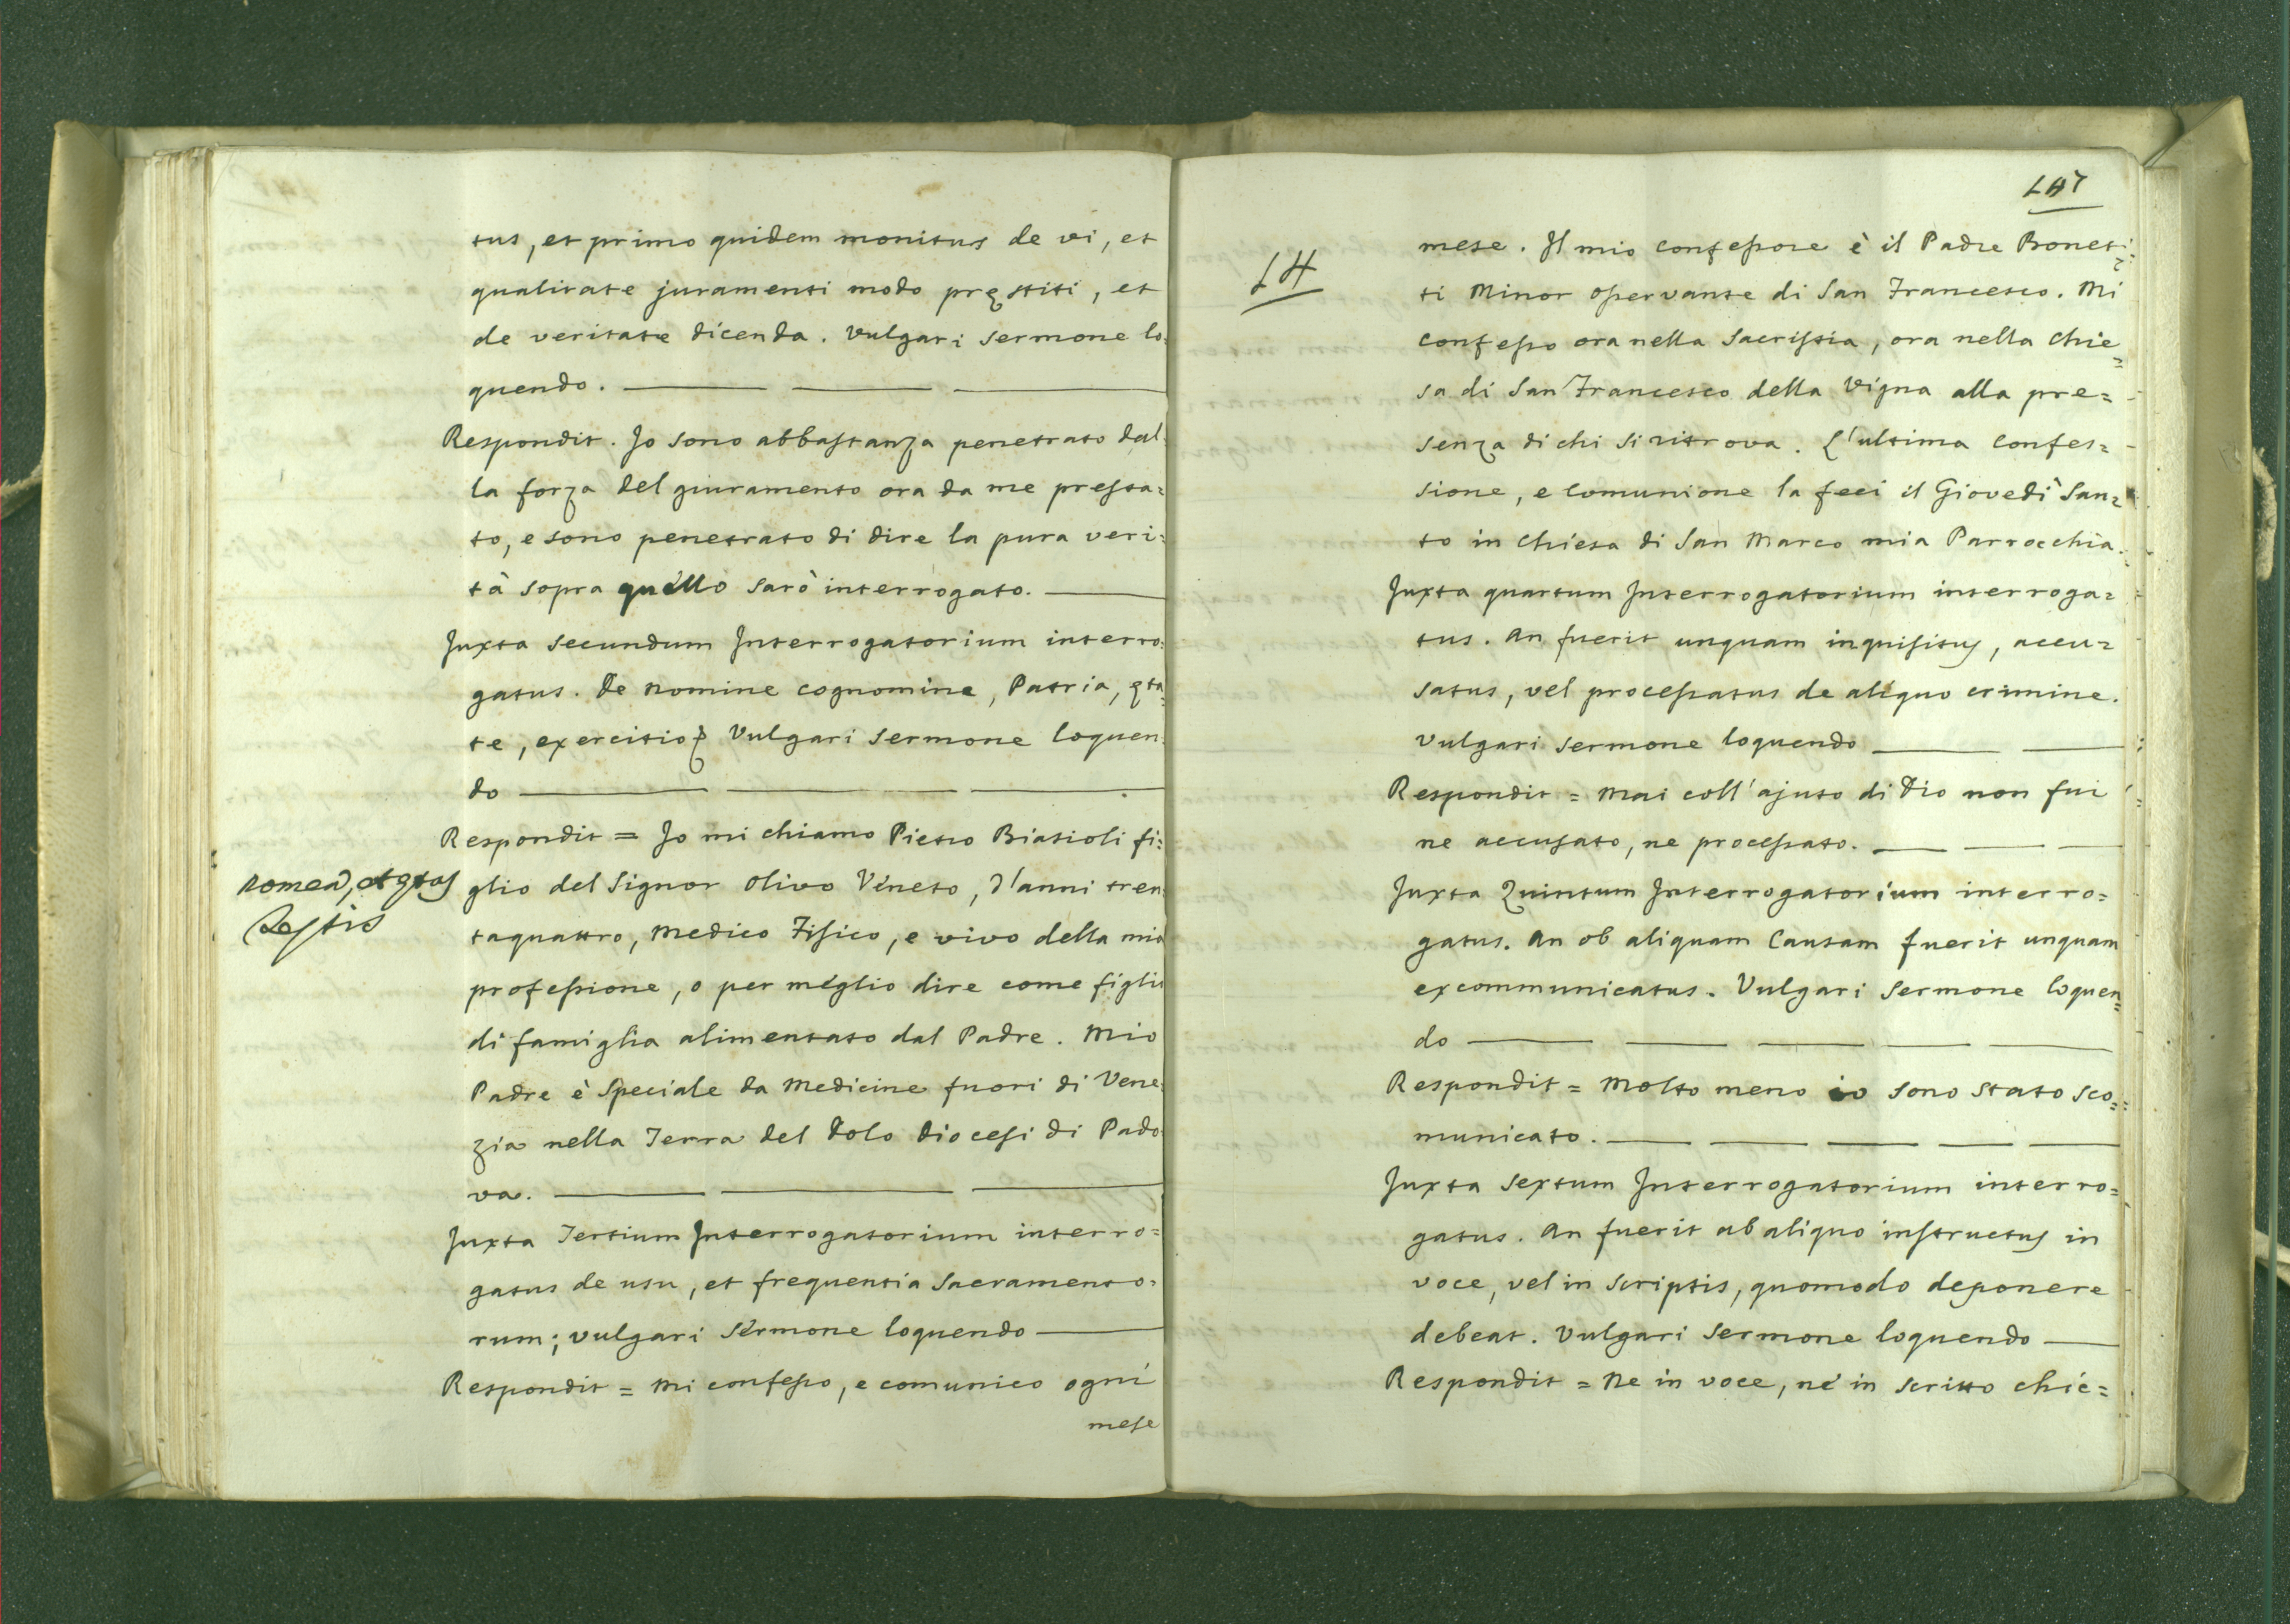 tus, et primo quidem monitus de vi, et
qualitate juramenti modo pręstiti, et
de veritate dicenda. Vulgari Sermone lo:
quendo.
Respondit. Jo sono abbastanza penetrato dal:
la forza del giuramento ora da me presta:
to, e sono penetrato di dire la pura veri:
tà sopra quello sarò interrogato.
Juxta secundum Interrogatorium interro:
gatus. De nomine cognomine, Patria, ęta:
te, exercitio Vulgari Sermone loquen:
do
Respondit = Jo mi chiamo Pietro Biasioli fi:
Nomen, et ętas
Testis
glio del Signor Olivo Veneto, d'anni tren:
taquattro, Medico Fisico, e vivo della mia
professione, o per meglio dire come figlio
di famiglia alimentato dal Padre. Mio
Padre è Speciale da Medicine fuori di Vene:
zia nella Terra del Dolo Diocesi di Pado:
va.
Juxta Tertium Interrogatorium interro=
gatus de usu, et frequentia Sacramento:
rum; vulgari Sermone loquendo
Respondit = Mi confesso, e comunico ogni
mese
147
14
mese. Il mio confessore è il Padre Bonet:
ti Minor Osservante di San Francesco. Mi
confesso ora nella Sacristia, ora nella Chie=
sa di San Francesco della Vigna alla pre=
senza di chi si ritrova. L'ultima Confes=
sione, e Comunione la feci il Giovedì San=
to in Chiesa di San Marco mia Parrocchia.
Juxta quartum Interrogatorium interroga=
tus. An fuerit unquam inquisitus, accu=
satus, vel processatus de aliquo crimine.
Vulgari Sermone loquendo
Respondit = Mai coll'ajuto di Dio non fui
ne accusato, ne processato.
Juxta Quintum Interrogatorium interro=
gatus. An ob aliquam Causam fuerit unquam
excommunicatus. Vulgari Sermone loquen=
do
Respondit = Molto meno io sono stato sco=
municato.
Juxta Sextum Interrogatorium interro=
gatus. An fuerit ab aliquo instructus in
voce, vel in scriptis, quomodo deponere
debeat. Vulgari Sermone loquendo
Respondit = Ne in voce, nè in scritto chic=